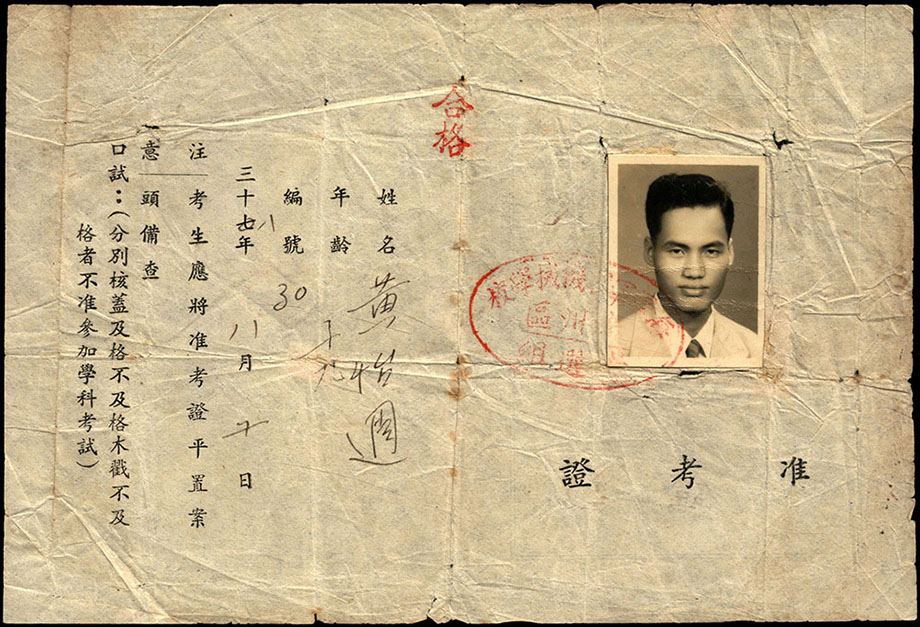 准考證
機械學校
州區
合格
姓名 黃怡週
年齡 十九
編號 30
三十七八年八月十日
注 考生應將准考證平置案
意 頭備查
口試：（分別核蓋及格不及格木戳不及
格者不准參加學科考試）